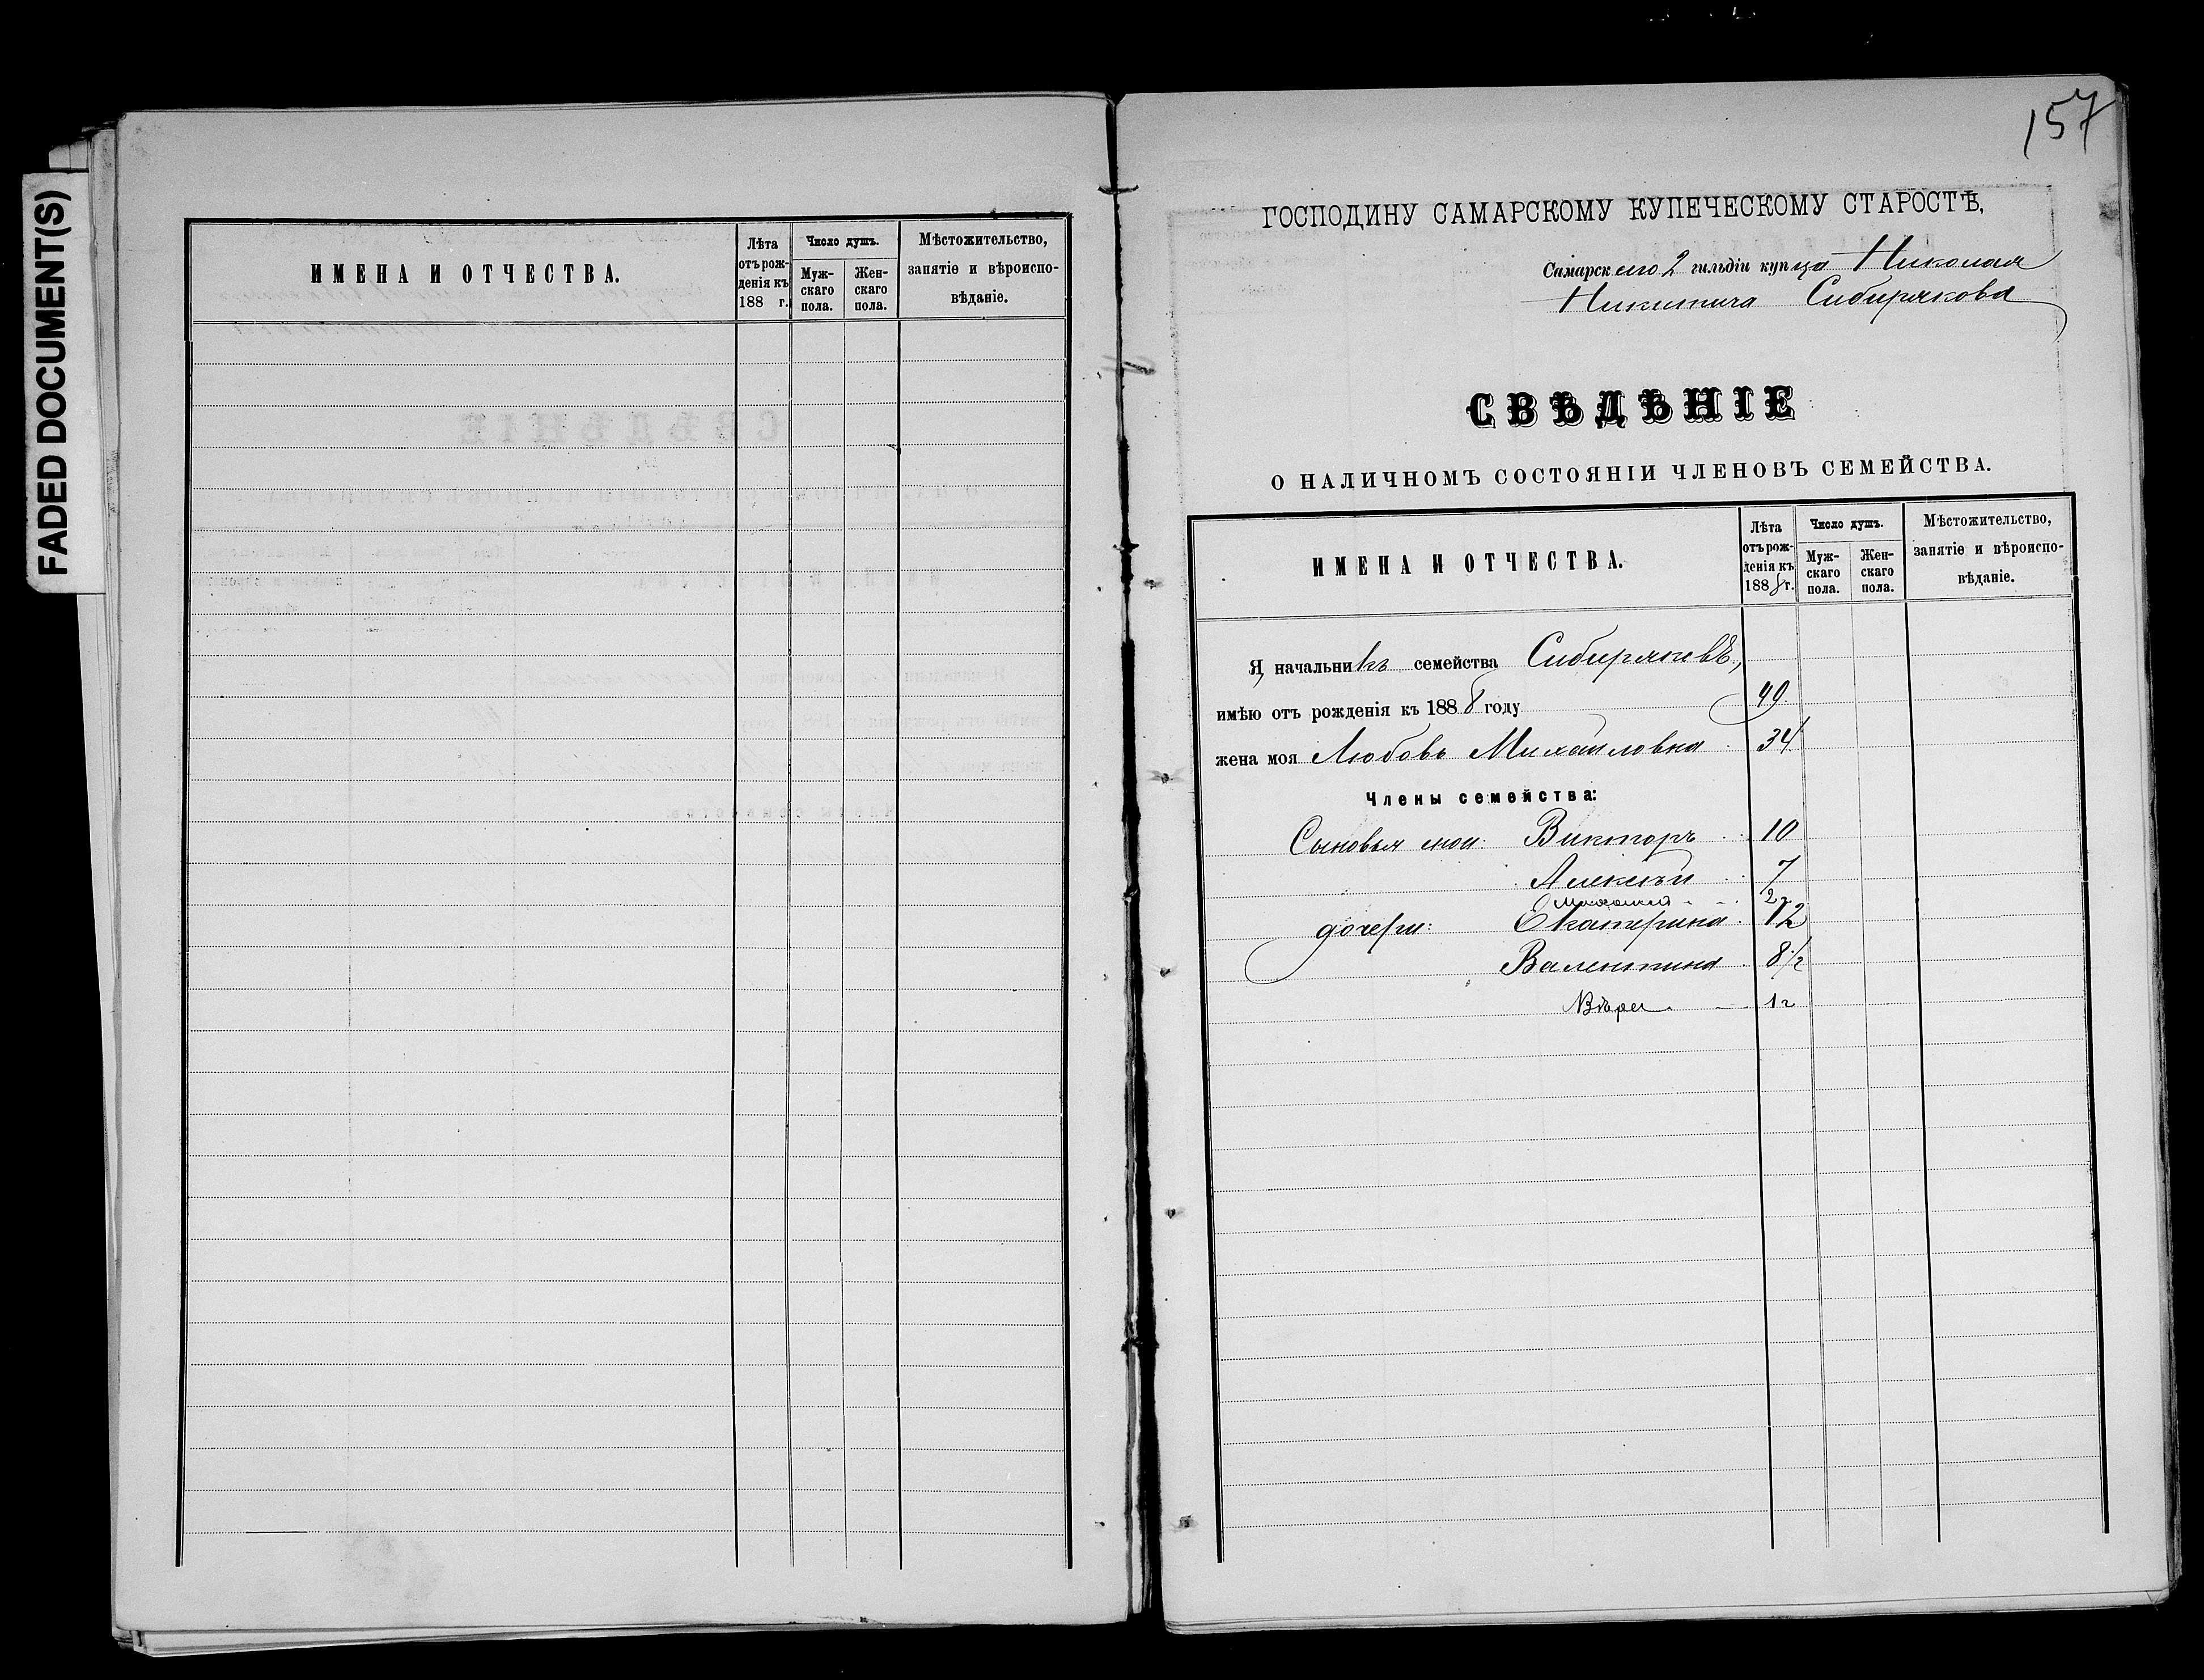 FADED DOCUMENT(S)
ИМЕНА И ОТЧЕСТВА.
Лѣта отъ рожденія къ 188 г.
Число душъ.
Мужскаго пола.
Женскаго пола.
Мѣстожительство, занятіе и вѣроисповѣданіе.
157
ГОСПОДИНУ САМАРСКОМУ КУПЕЧЕСКОМУ СТАРОСТѢ,
Самарскаго 2 гильдіи купца Николая
Никитича Сибирякова
СВѢДѢНІЕ
О НАЛИЧНОМЪ СОСТОЯНІИ ЧЛЕНОВЪ СЕМЕЙСТВА.
ИМЕНА И ОТЧЕСТВА.
Лѣта отъ рожденія къ 1888 г.
Число душъ.
Мужскаго пола.
Женскаго пола.
Мѣстожительство, занятіе и вѣроисповѣданіе.
Я, начальникъ семейства Сибиряковъ,
имѣю отъ рожденія къ 1888 году 49
жена моя Любовь Михайловна 34
Члены семейства:
Сыновья мои: Викторъ 10
Алексѣй 7
Михаилъ 2 г
дочери: Екатерина 12
Валентина 8 1/2
Вѣра 1 г